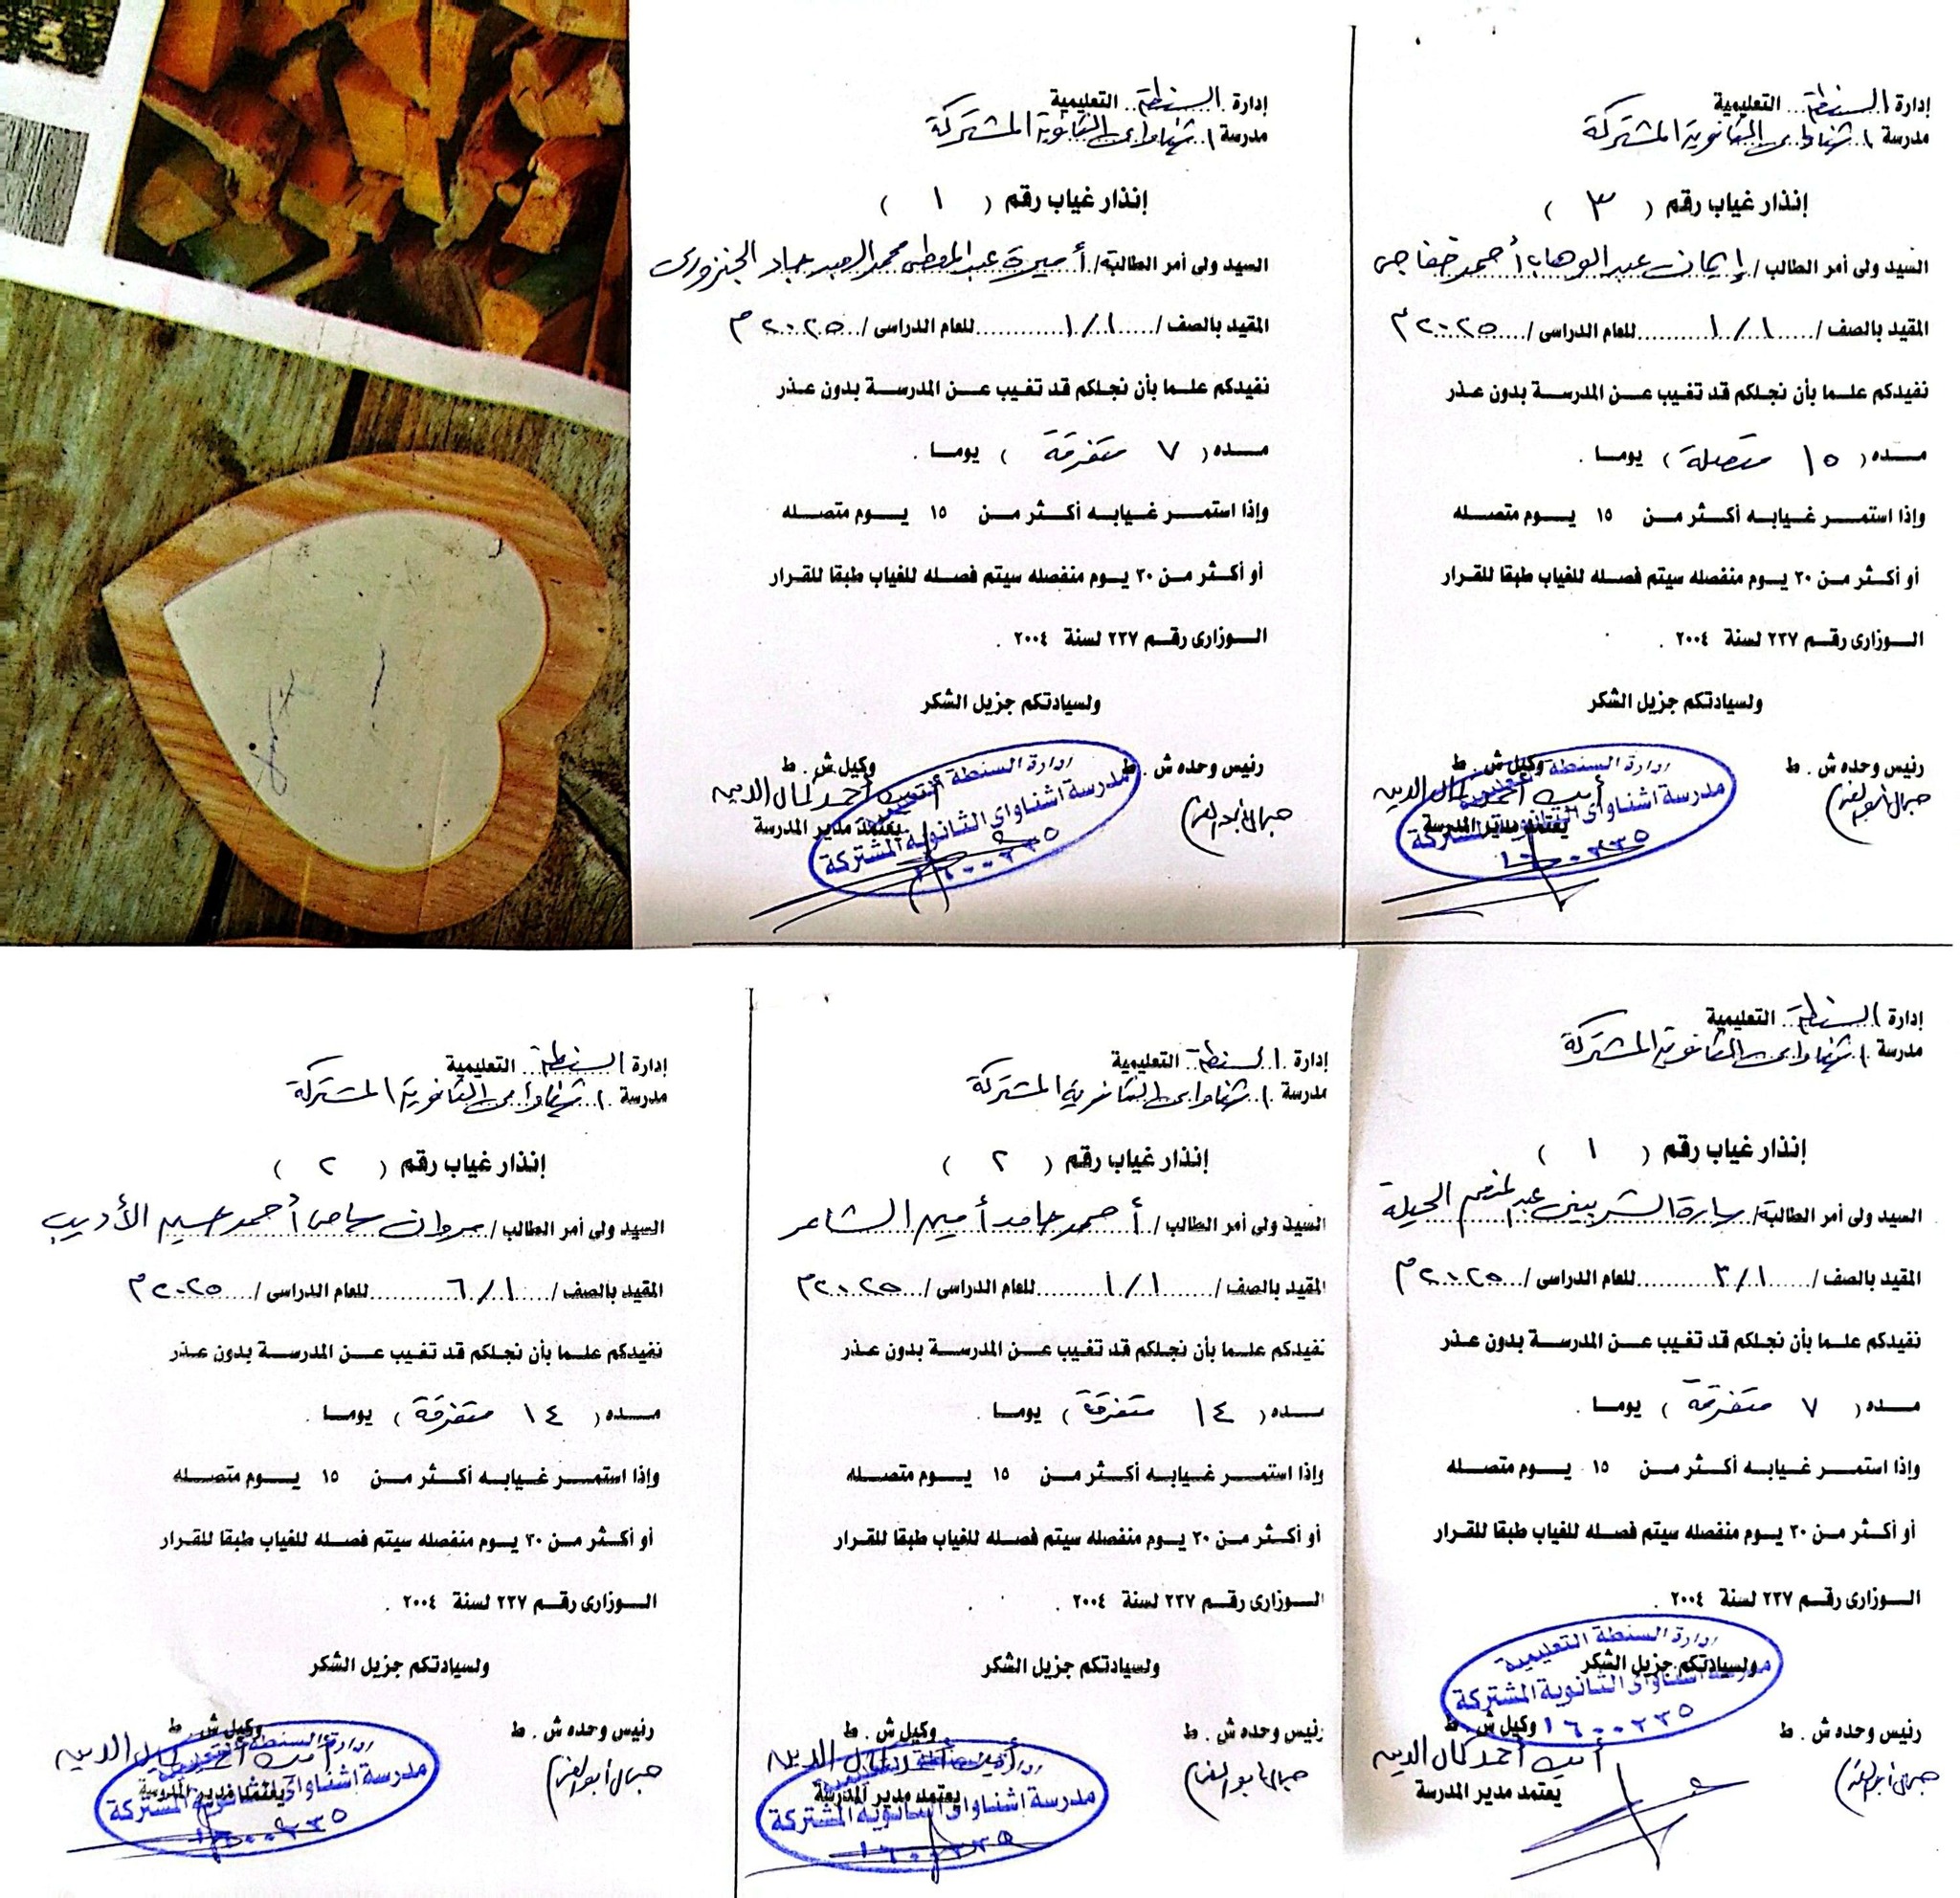 إدارة السنطة التعليمية
مدرسة اشناواى الثانوية المشتركة
إنذار غياب رقم ( ٣ )
السيد ولى أمر الطالب / إيمان عبد الوهاب أحمد خفاجى
المقيد بالصف / ١/١ للعام الدراسى / ٢٠٢٥ م
نفيدكم علما بأن نجلكم قد تغيب عن المدرسة بدون عذر
مده ( ١٥ متصلة ) يوما .
وإذا استمر غيابه أكثر من ١٥ يوم متصله
أو أكثر من ٣٠ يوم منفصله سيتم فصله للغياب طبقا للقرار
الوزارى رقم ٢٣٧ لسنة ٢٠٠٤ .
ولسيادتكم جزيل الشكر
رئيس وحده ش . ط وكيل ش . ط
جمال أبو العز أيمن أحمد كمال الدين
يعتمد مدير المدرسة
إدارة السنطة التعليمية
مدرسة اشناواى الثانوية المشتركة
١٦٠٠٢٣٥
إدارة السنطة التعليمية
مدرسة اشناواى الثانوية المشتركة
إنذار غياب رقم ( ١ )
السيد ولى أمر الطالبة / أميرة عبد المعطى محمد السعيد حماد الجنزورى
المقيد بالصف / ١/١ للعام الدراسى / ٢٠٢٥ م
نفيدكم علما بأن نجلكم قد تغيب عن المدرسة بدون عذر
مده ( ٧ متفرقة ) يوما .
وإذا استمر غيابه أكثر من ١٥ يوم متصله
أو أكثر من ٣٠ يوم منفصله سيتم فصله للغياب طبقا للقرار
الوزارى رقم ٢٣٧ لسنة ٢٠٠٤ .
ولسيادتكم جزيل الشكر
رئيس وحده ش . ط وكيل ش . ط
جمال أبو العز أيمن أحمد كمال الدين
يعتمد مدير المدرسة
إدارة السنطة التعليمية
مدرسة اشناواى الثانوية المشتركة
١٦٠٠٢٣٥
إدارة السنطة التعليمية
مدرسة اشناواى الثانوية المشتركة
إنذار غياب رقم ( ١ )
السيد ولى أمر الطالبة / سارة الشربينى عبد المنعم
المقيد بالصف / ٣/١ للعام الدراسى / ٢٠٢٥ م
نفيدكم علما بأن نجلكم قد تغيب عن المدرسة بدون عذر
مده ( ٧ متفرقة ) يوما .
وإذا استمر غيابه أكثر من ١٥ يوم متصله
أو أكثر من ٣٠ يوم منفصله سيتم فصله للغياب طبقا للقرار
الوزارى رقم ٢٣٧ لسنة ٢٠٠٤ .
ولسيادتكم جزيل الشكر
إدارة السنطة التعليمية
مدرسة اشناواى الثانوية المشتركة
١٦٠٠٢٣٥
رئيس وحده ش . ط وكيل ش . ط
جمال أبو العز أيمن أحمد كمال الدين
يعتمد مدير المدرسة
إدارة السنطة التعليمية
مدرسة اشناواى الثانوية المشتركة
إنذار غياب رقم ( ٢ )
السيد ولى أمر الطالب / أحمد حامد أمين الشاعر
المقيد بالصف / ١/١ للعام الدراسى / ٢٠٢٥ م
نفيدكم علما بأن نجلكم قد تغيب عن المدرسة بدون عذر
مده ( ١٤ متفرقة ) يوما .
وإذا استمر غيابه أكثر من ١٥ يوم متصله
أو أكثر من ٣٠ يوم منفصله سيتم فصله للغياب طبقا للقرار
الوزارى رقم ٢٣٧ لسنة ٢٠٠٤ .
ولسيادتكم جزيل الشكر
رئيس وحده ش . ط وكيل ش . ط
جمال أبو العز أيمن أحمد كمال الدين
يعتمد مدير المدرسة
إدارة السنطة التعليمية
مدرسة اشناواى الثانوية المشتركة
١٦٠٠٢٣٥
إدارة السنطة التعليمية
مدرسة اشناواى الثانوية المشتركة
إنذار غياب رقم ( ٢ )
السيد ولى أمر الطالب / مروان سامى أحمد حسين الأديب
المقيد بالصف / ٦/١ للعام الدراسى / ٢٠٢٥ م
نفيدكم علما بأن نجلكم قد تغيب عن المدرسة بدون عذر
مده ( ١٤ متفرقة ) يوما .
وإذا استمر غيابه أكثر من ١٥ يوم متصله
أو أكثر من ٣٠ يوم منفصله سيتم فصله للغياب طبقا للقرار
الوزارى رقم ٢٣٧ لسنة ٢٠٠٤ .
ولسيادتكم جزيل الشكر
رئيس وحده ش . ط وكيل ش . ط
جمال أبو العز أيمن أحمد كمال الدين
يعتمد مدير المدرسة
إدارة السنطة التعليمية
مدرسة اشناواى الثانوية المشتركة
١٦٠٠٢٣٥